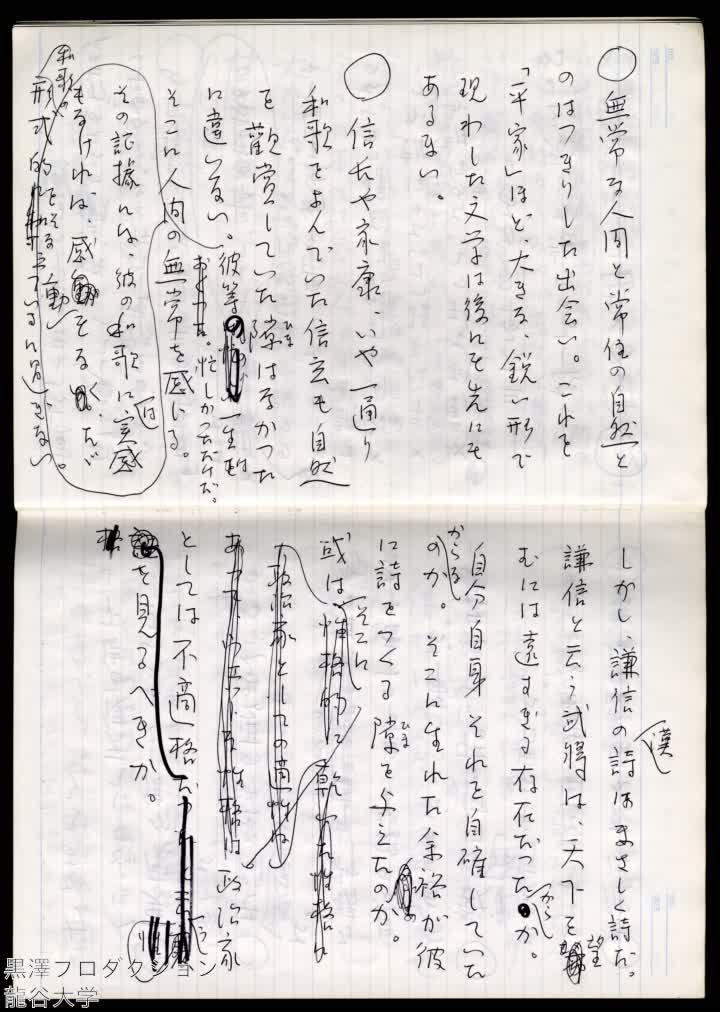 ○ 無常な人間と常住の自然と
のはつきりした出会い。これを
「平家」ほど、大きな、鋭い形で
現わした文学は後にも先にも
あるまい。
○ 信長や家康、いや一通り
和歌をよんでいた信玄も自然
を観賞していた隙はなかつた
ひま
に違いない。彼等の一生も
忙しかつただけだ。
そこに人間の無常を感じる。
その証據には、彼の和歌に実感
は
もなければ、感動もなく、たゞ
和歌の
形式的に過ぎない。
しかし、謙信の漢詩はまさしく詩だ。
謙信と云う武将は、天下を望
むには遠すぎる存在だつたからか。
自分自身それを自確していた
からなのか。そこに生れた余裕が彼
に詩をつくる隙を与えたのか。
ひま
或は、そこに
政治家
としては不適格
性
格を見るべきか。
黒澤プロダクション
龍谷大学